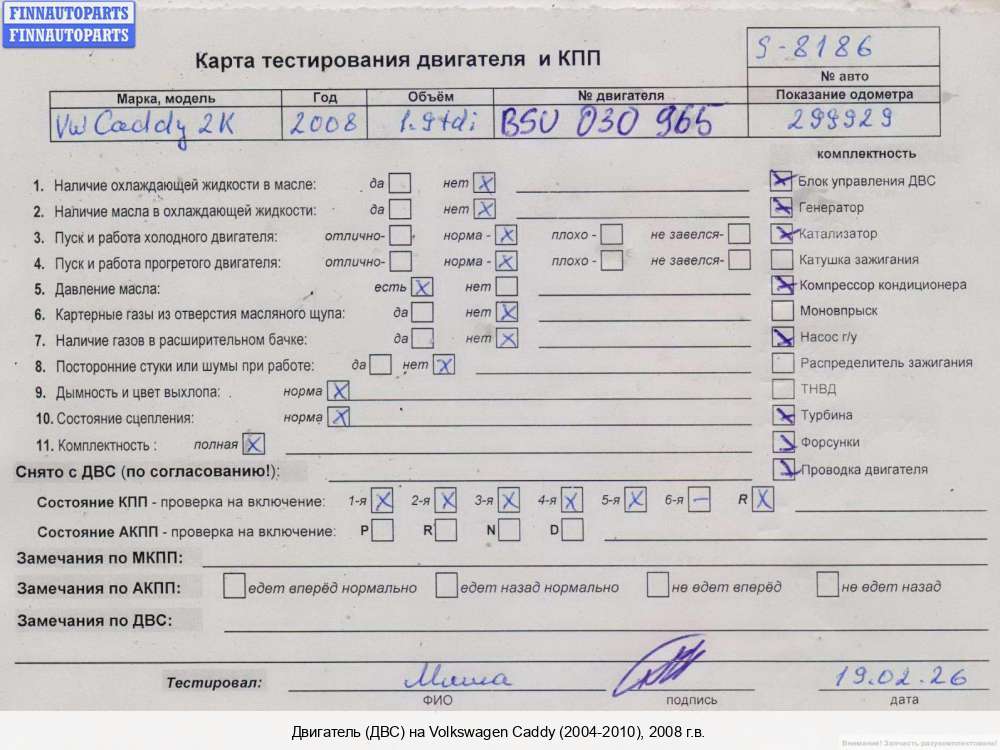 FINNAUTOPARTS
FINNAUTOPARTS
Карта тестирования двигателя и КПП
9-8186
№ авто
Марка, модель Год Объём № двигателя Показание одометра
VW Caddy 2K 2008 1.9tdi BSU 030 965 299929
комплектность
1. Наличие охлаждающей жидкости в масле: да нет X
Блок управления ДВС
2. Наличие масла в охлаждающей жидкости: да нет X
Генератор
3. Пуск и работа холодного двигателя: отлично- норма - X плохо - не завелся-
Катализатор
4. Пуск и работа прогретого двигателя: отлично- норма - X плохо - не завелся-
Катушка зажигания
5. Давление масла: есть X нет
Компрессор кондиционера
6. Картерные газы из отверстия масляного щупа: да нет X
Моновпрыск
7. Наличие газов в расширительном бачке: да нет X
Насос г/у
8. Посторонние стуки или шумы при работе: да нет X
Распределитель зажигания
9. Дымность и цвет выхлопа: норма X
ТНВД
10. Состояние сцепления: норма X
Турбина
11. Комплектность : полная X
Форсунки
Снято с ДВС (по согласованию!):
Проводка двигателя
Состояние КПП - проверка на включение: 1-я X 2-я X 3-я X 4-я X 5-я X 6-я – R X
Состояние АКПП - проверка на включение: P R N D
Замечания по МКПП:
Замечания по АКПП: едет вперёд нормально едет назад нормально не едет вперёд не едет назад
Замечания по ДВС:
Тестировал: Миша 19.02.26
ФИО подпись дата
Двигатель (ДВС) на Volkswagen Caddy (2004-2010), 2008 г.в.
Внимание! Запчасть разукомплектована!